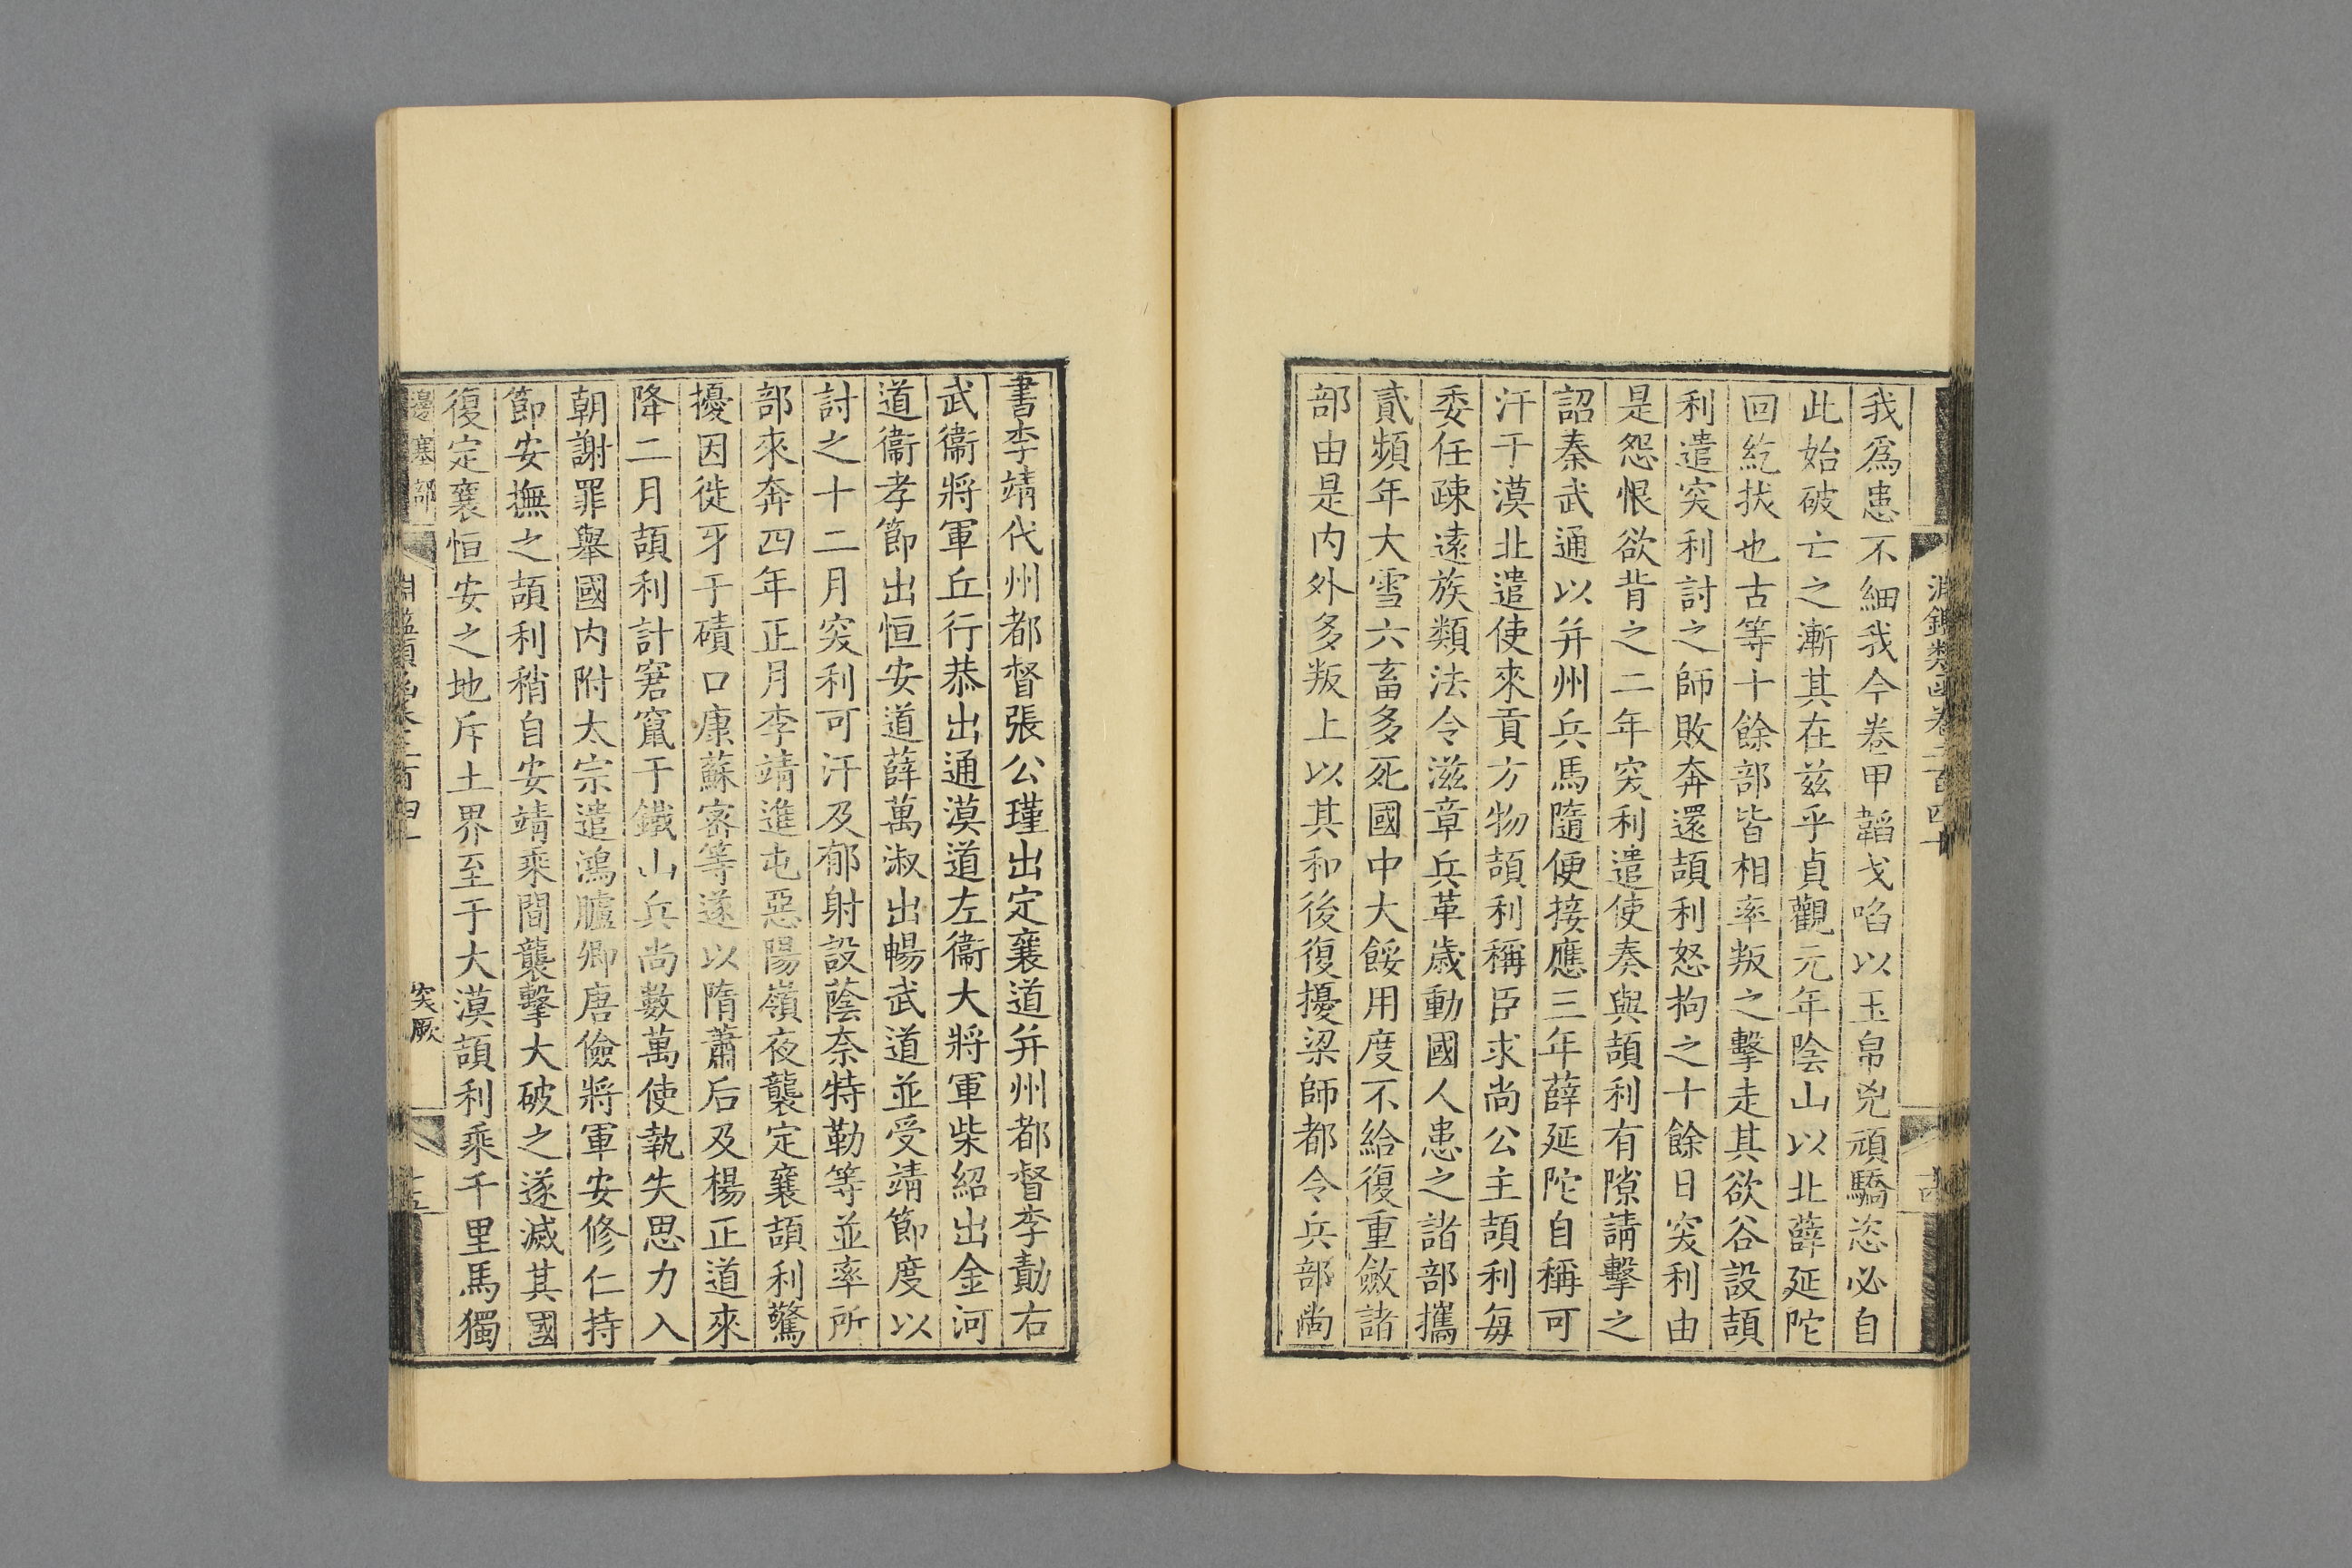 我爲患不細我今卷甲韜戈啗以玉帛兇頑驕恣必自
此始破亡之漸其在兹乎貞觀元年陰山以北薛延陀
回紇拔也古等十餘部皆相率叛之擊走其欲谷設頡
利遣突利討之師敗奔還頡利怒拘之十餘日突利由
是怨恨欲背之二年突利遣使奏與頡利有隙請擊之
詔秦武通以并州兵馬隨便接應三年薛延陀自稱可
汗于漠北遣使來貢方物頡利稱臣求尚公主頡利每
委任疎遠族類法令滋章兵革歲動國人患之諸部攜
貳頻年大雪六畜多死國中大餒用度不給復重斂諸
部由是内外多叛上以其和後復擾梁師都令兵部尚
書李靖代州都督張公瑾出定襄道并州都督李勣右
武衞將軍丘行恭出通漠道左衞大將軍柴紹出金河
道衞孝節出恒安道薛萬淑出暢武道並受靖節度以
討之十二月突利可汗及郁射設蔭奈特勒等並率所
部來奔四年正月李靖進屯惡陽嶺夜襲定襄頡利驚
擾因徙牙于磧口康蘇密等遂以隋蕭后及楊正道來
降二月頡利計窘竄于鐵山兵尚數萬使執失思力入
朝謝罪舉國内附太宗遣鴻臚卿唐儉將軍安修仁持
節安撫之頡利稍自安靖乘間襲擊大破之遂滅其國
復定襄恒安之地斥土界至于大漠頡利乘千里馬獨
邊塞部
突厥